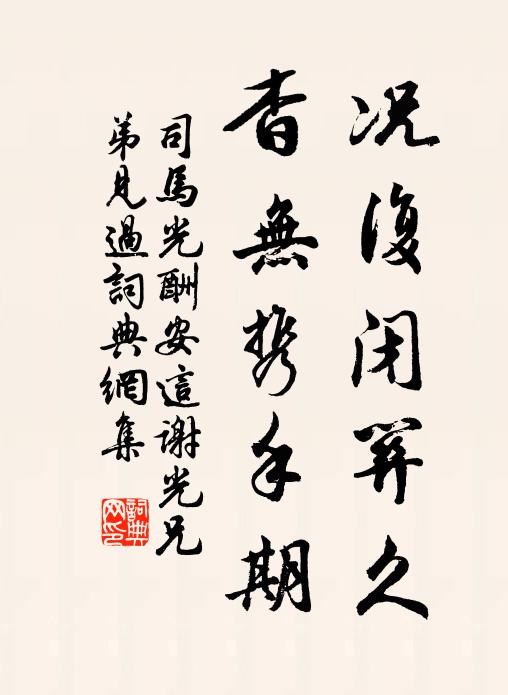 况復閉關久
杳無携手期
司馬光酬安這謝光兄
弟見過詞典網集
詞典网印